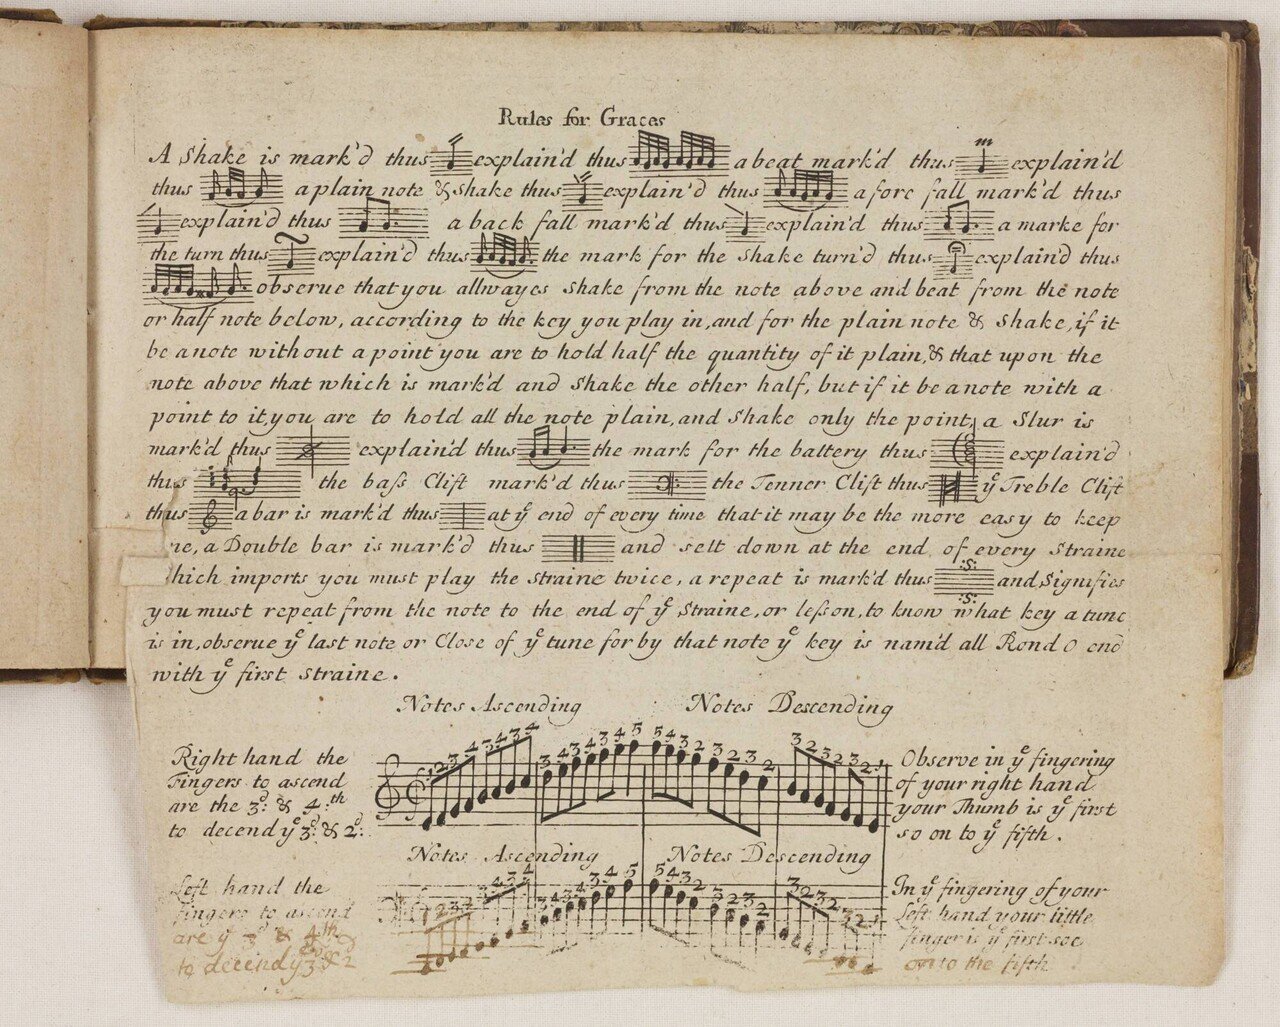 Rules for Graces
A Shake is mark'd thus explain'd thus a beat mark'd thus explain'd
thus a plain note & shake thus explain'd thus a fore fall mark'd thus
explain'd thus a back fall mark'd thus explain'd thus a marke for
the turn thus explain'd thus the mark for the shake turn'd thus explain'd thus
observe that you allwayes shake from the note above and beat from the note
or half note below, according to the key you play in, and for the plain note & shake, if it
be a note without a point you are to hold half the quantity of it plain, & that upon the
note above that which is mark'd and shake the other half, but if it be a note with a
point to it, you are to hold all the note plain, and shake only the point, a Slur is
mark'd thus explain'd thus the mark for the battery thus explain'd
thus the bass Clift mark'd thus the Tenner Clift thus yͤ Treble Clift
thus a bar is mark'd thus at yͤ end of every time that it may be the more easy to keep
me, a Double bar is mark'd thus and sett down at the end of every straine
which imports you must play the straine twice, a repeat is mark'd thus :S: and Signifies
:S:
you must repeat from the note to the end of yͤ Straine, or lesson, to know what key a tune
is in, observe yͤ last note or Close of yͤ tune for by that note yͤ key is nam'd all Rond O end
with yͤ first straine.
Notes Ascending Notes Descending
Right hand the
Fingers to ascend
are the 3ᵈ: & 4:ᵗʰ
to decend yͤ 3ᵈ: & 2ᵈ:
1 2 3 4 3 4 3 4 3 4 3 4 3 4 5 5 4 3 2 3 2 3 2 3 2 3 2 3 2 1
Observe in yͤ fingering
of your right hand
your Thumb is yͤ first
so on to yͤ fifth.
Notes Ascending Notes Descending
Left hand the
fingers to ascend
are yͤ 3ᵈ & 4ᵗʰ
to decend yͤ 3ᵈ & 2
In yͤ fingering of your
left hand your little
finger is yͤ first soe
on to the fifth